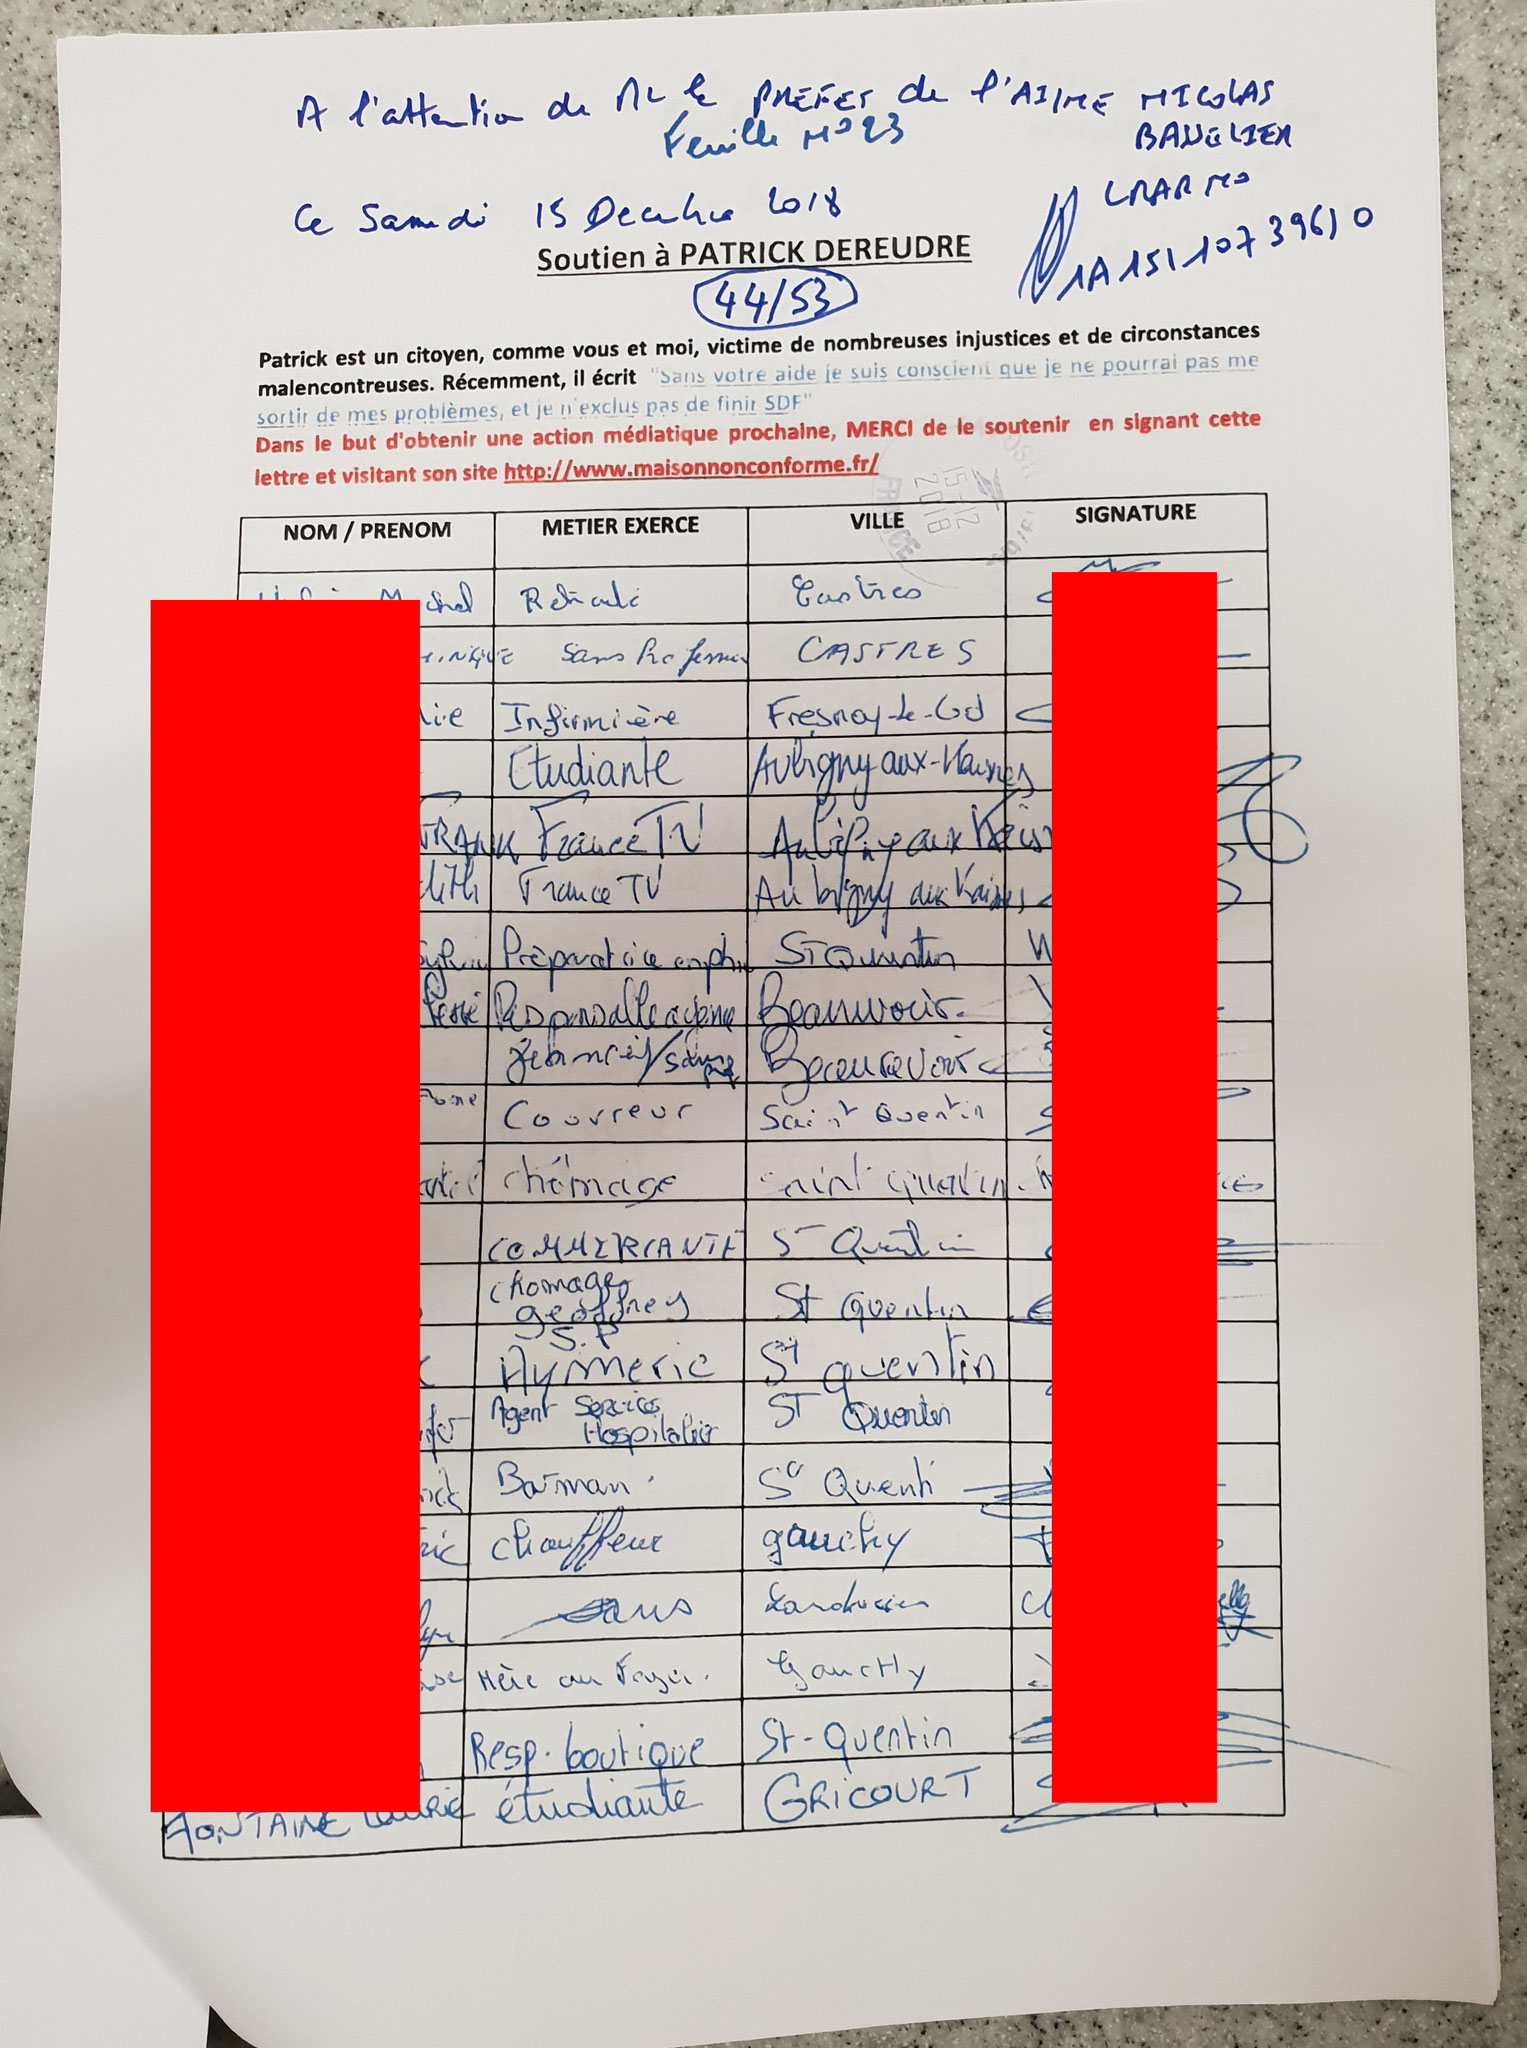 A l'attention de Mr le PREFET de l'AISNE NICOLAS
BASSELIER
Feuille N° 23
LRAR N°
1A 151 107 3961 0
Ce Samedi 15 Decembre 2018
Soutien à PATRICK DEREUDRE
44/53
Patrick est un citoyen, comme vous et moi, victime de nombreuses injustices et de circonstances
malencontreuses. Récemment, il écrit "Sans votre aide je suis conscient que je ne pourrai pas me
sortir de mes problèmes, et je n'exclus pas de finir SDF"
Dans le but d'obtenir une action médiatique prochaine, MERCI de le soutenir en signant cette
lettre et visitant son site http://www.maisonnonconforme.fr/
FRANCE 15-12 2018
NOM / PRENOM METIER EXERCE VILLE SIGNATURE
Retraité Castres
Sans Profession CASTRES
Infirmière Fresnoy-le-Gd
Etudiante Aubigny aux-Kaisnes
FRANK France TV Aubigny aux Kaisnes
France TV Aubigny aux Kaisnes
Sylvie Préparatrice en ph St Quentin
Responsable agence Beaurevoir
Beaurevoir
Couvreur Saint Quentin
chômage Saint Quentin
COMMERCANTE St Quentin
chomage geoffrey St Quentin
S.P Aymeric St quentin
Agent Services Hospitalier ST Quentin
Barman St Quenti
chauffeur gauchy
sans
Mère au Foyer. Gauchy
Resp. boutique St-Quentin
FONTAINE Laurie étudiante GRICOURT